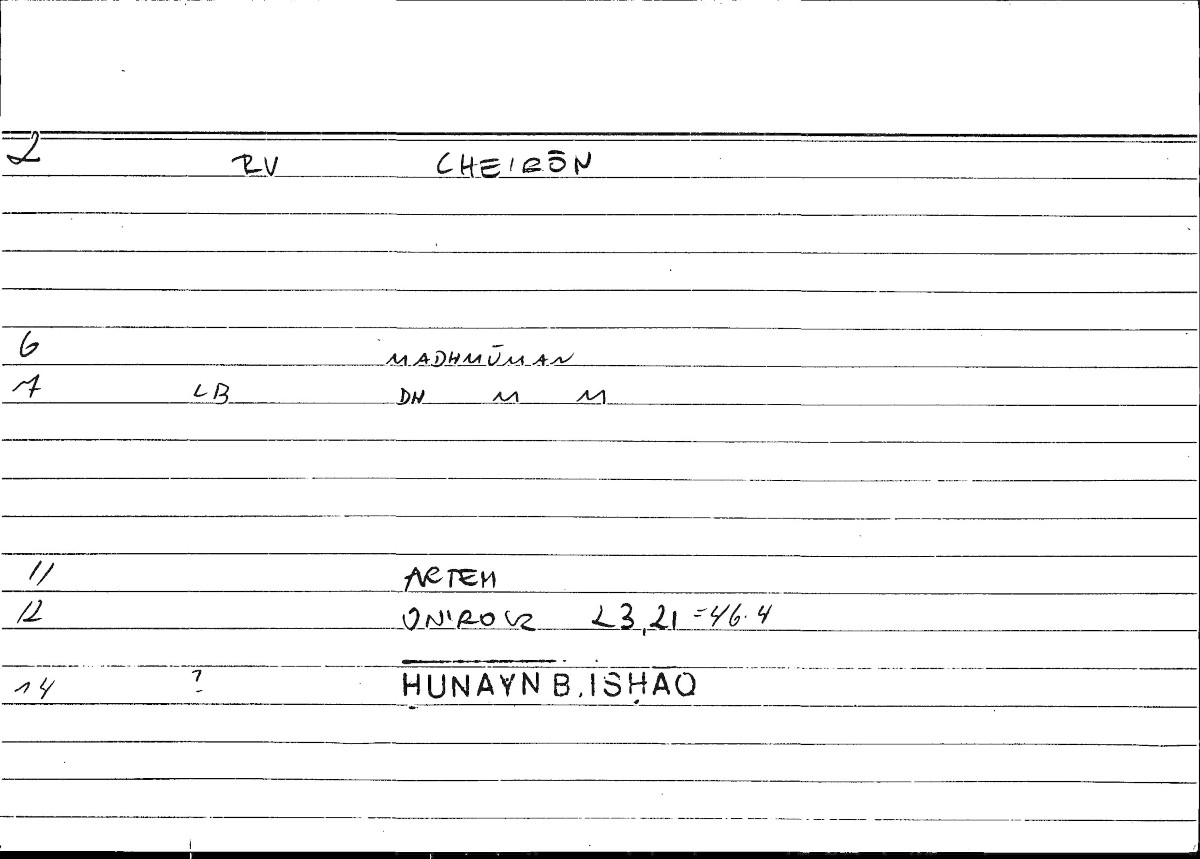 2 RV CHEIRŌN
6 MADHMŪMAN
7 LB DH M M
11 ARTEM
12 ONIROCR 23,21 = 46.4
14 ? ḤUNAYN B. ISḤAQ